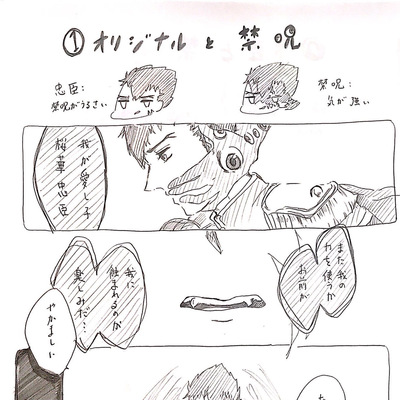 ①オリジナルと禁呪
忠臣:
禁呪がうるさい
禁呪:
気が強い
我が愛し子
桜葉忠臣
また我の
力を使うか
お前が
我に
蝕まれるのが
楽しみだ…
やかましい